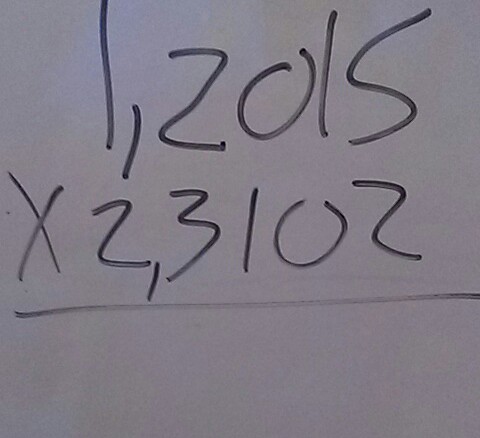 1,2015
X 2,3102